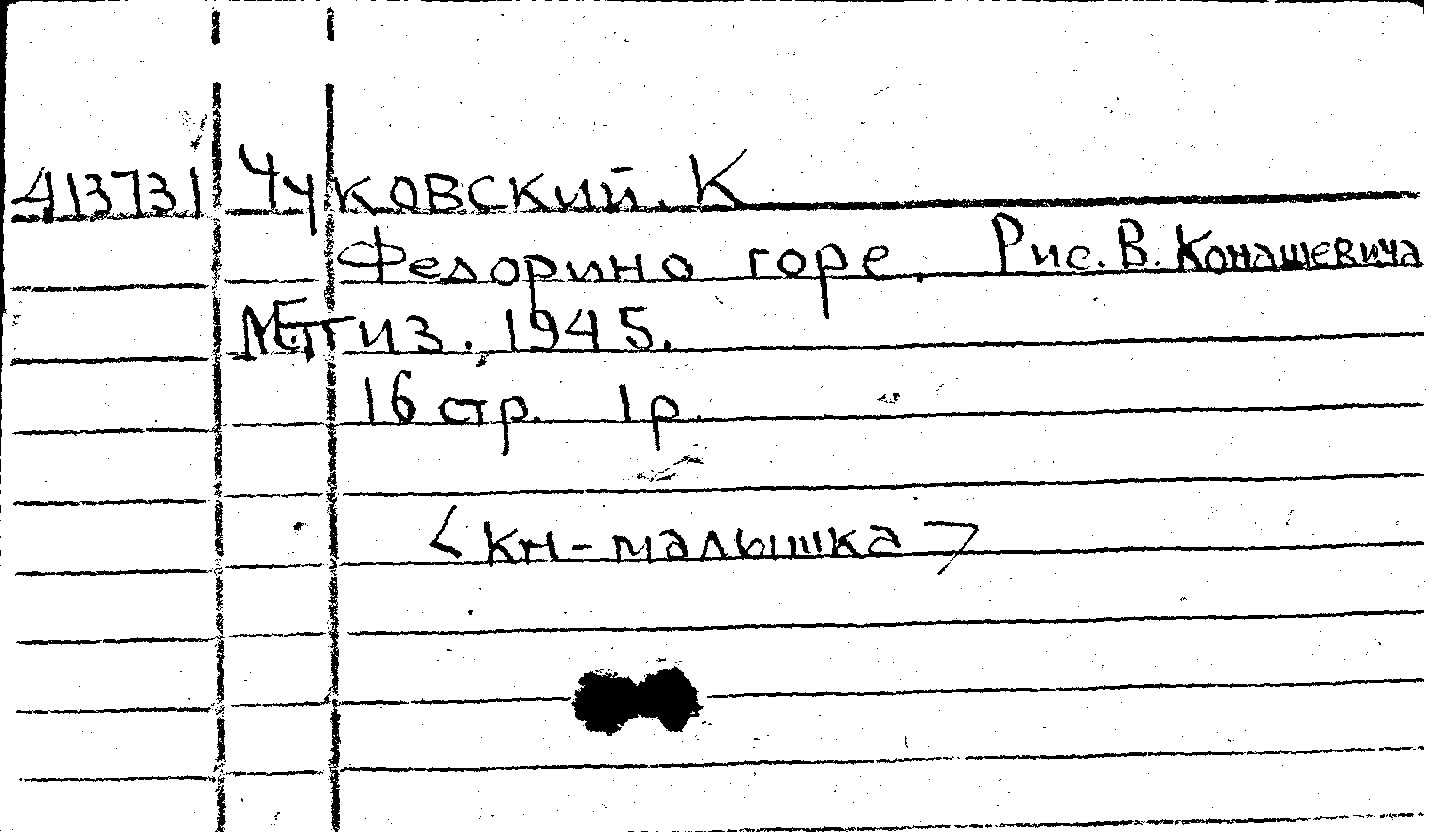 413731 Чуковский. К
Федорино горе. Рис. В. Конашевича
1945.
16 стр. 1р.
< кн-малышка >